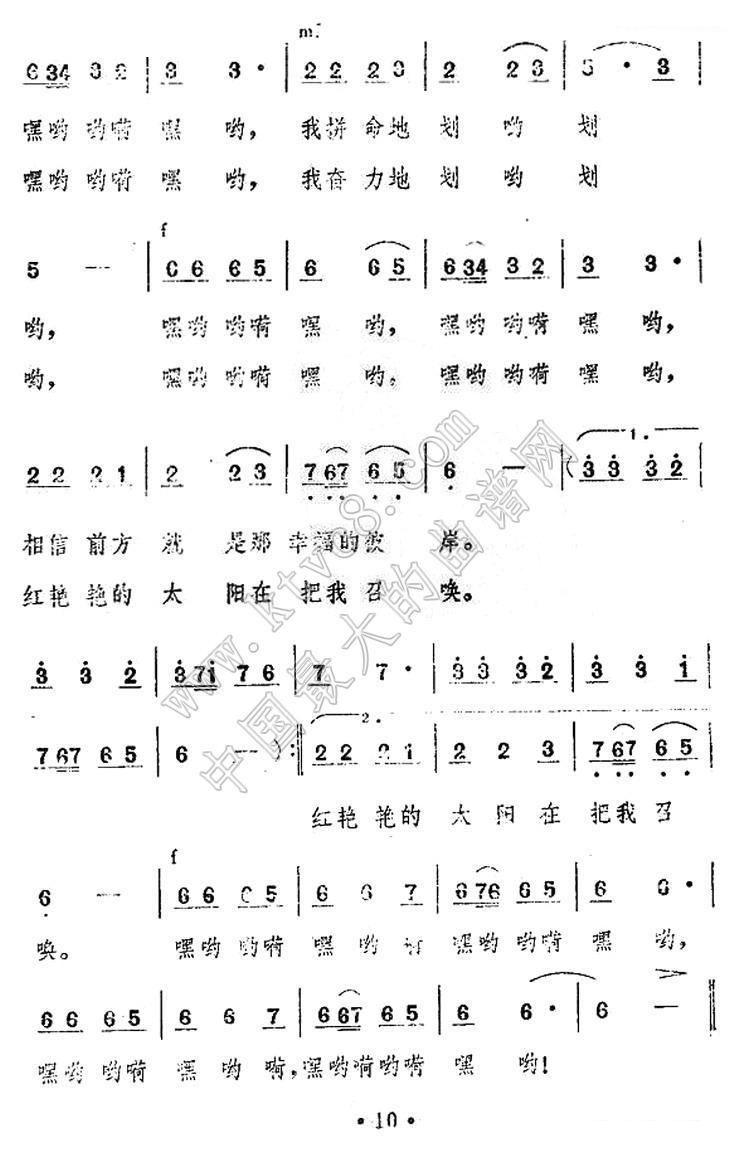 mf
6 34 3 2 | 3 3 · | 2 2 2 3 | 2 2 3 | 5 · 3 |
嘿哟 哟嗬 嘿 哟， 我拼 命地 划 哟 划
嘿哟 哟嗬 嘿 哟， 我奋 力地 划 哟 划
f
5 — | 6 6 6 5 | 6 6 5 | 6 34 3 2 | 3 3 · |
哟， 嘿哟 哟嗬 嘿 哟， 嘿哟 哟嗬 嘿 哟，
哟， 嘿哟 哟嗬 嘿 哟， 嘿哟 哟嗬 嘿 哟，
1.
2 2 2 1 | 2 2 3 | 7 67 6 5 | 6 — | (3 3 3 2 |
相信 前方 就 是那 幸福的彼 岸。
红艳 艳的 太 阳在 把我 召 唤。
3 3 2 | 3 7 1 7 6 | 7 7 · | 3 3 3 2 | 3 3 1 |
2.
7 67 6 5 | 6 — ) :‖ 2 2 2 1 | 2 2 3 | 7 67 6 5 |
红艳 艳的 太 阳在 把我 召
f
6 — | 6 6 6 5 | 6 6 7 | 6 76 6 5 | 6 6 · |
唤。 嘿哟 哟嗬 嘿 哟 嗬 嘿哟 哟嗬 嘿 哟，
6 6 6 5 | 6 6 7 | 6 67 6 5 | 6 6 · | 6 — ‖
嘿哟 哟嗬 嘿 哟 嗬，嘿哟嗬哟嗬 嘿 哟！
· 10 ·
www.ktvc8.com
中国最大的曲谱网